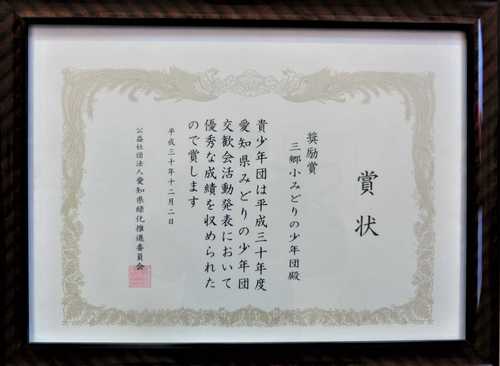 賞状
奨励賞
三郷小みどりの少年団殿
貴少年団は平成三十年度
愛知県みどりの少年団
交歓会活動発表において
優秀な成績を収められた
ので賞します
平成三十年十二月二日
公益社団法人愛知県緑化推進委員会